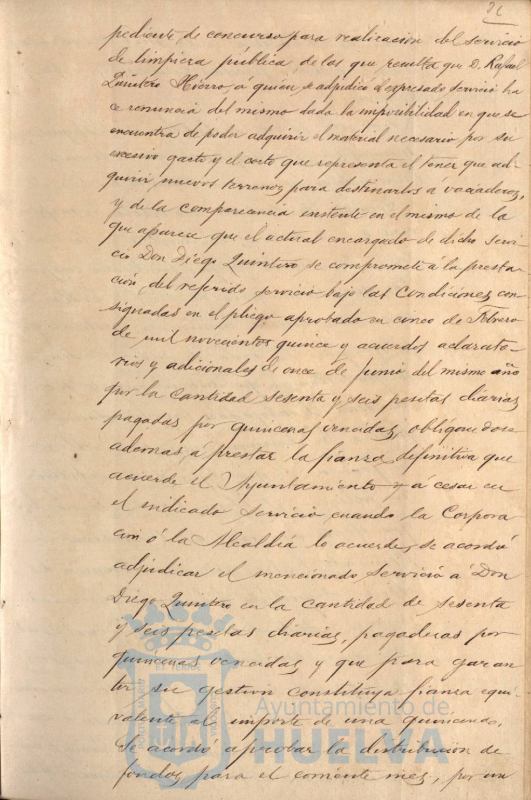 26
pediente de concurso para realización del servicio
de limpieza pública de los que resulta que D. Rafael
Quintero Hierro, á quién se adjudicó el expresado servicio ha
ce renuncia del mismo dada la imposibilidad en que se
encuentra de poder adquirir el material necesario por su
excesivo gasto y el costo que representa el tener que ad
quirir nuevos terrenos para destinarlos a vaciaderos,
y de la comparecencia instente en el mismo de la
que aparece que el actual encargado de dicho servi
cio Don Diego Quintero se compromete á la presta
ción del referido servicio bajo las Condiciones con
signadas en el pliego aprobado en cinco de Febrero
de mil novecientos quince y acuerdos aclarato
rios y adicionales de once de Junio del mismo año
por la cantidad sesenta y seis pesetas diarias
pagadas por quincenas vencidas, obligandose
ademas á prestar la fianza definitiva que
acuerde el Ayuntamiento y á cesar en
el indicado servicio cuando la Corpora
ción ó la Alcaldía lo acuerde, se acordó
adjudicar el mencionado servicio á Don
Diego Quintero en la cantidad de sesenta
y seis pesetas diarias, pagaderas por
quincenas vencidas y que para garan
tir su gestion constituya fianza equi
valente al importe de una quincena.
Se acordó aprobar la distribucion de
fondos para el corriente mes, por un
Ayuntamiento de
HUELVA